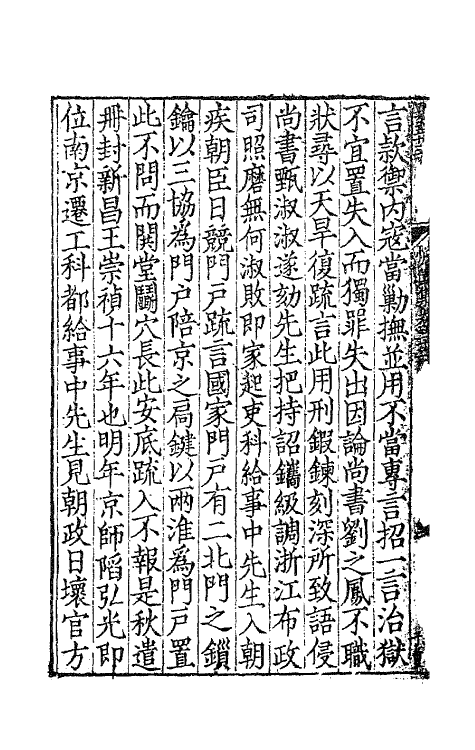 言款禦内寇當勦撫並用不當專言招一言治獄
不宜置失入而獨罪失出因論尚書劉之鳳不職
狀尋以天旱復疏言此用刑鍜鍊刻深所致語侵
尚書甄淑淑遂劾先生把持詔鐫級調浙江布政
司照磨無何淑敗即家起吏科給事中先生入朝
疾朝臣日競門戸疏言國家門戸有二北門之鎖
鑰以三協為門戸陪京之扃鍵以兩淮爲門戸置
此不問而閧堂鬭穴長此安底疏入不報是秋遣
冊封新昌王崇禎十六年也明年京師䧟弘光即
位南京遷工科都給事中先生見朝政日壞官方